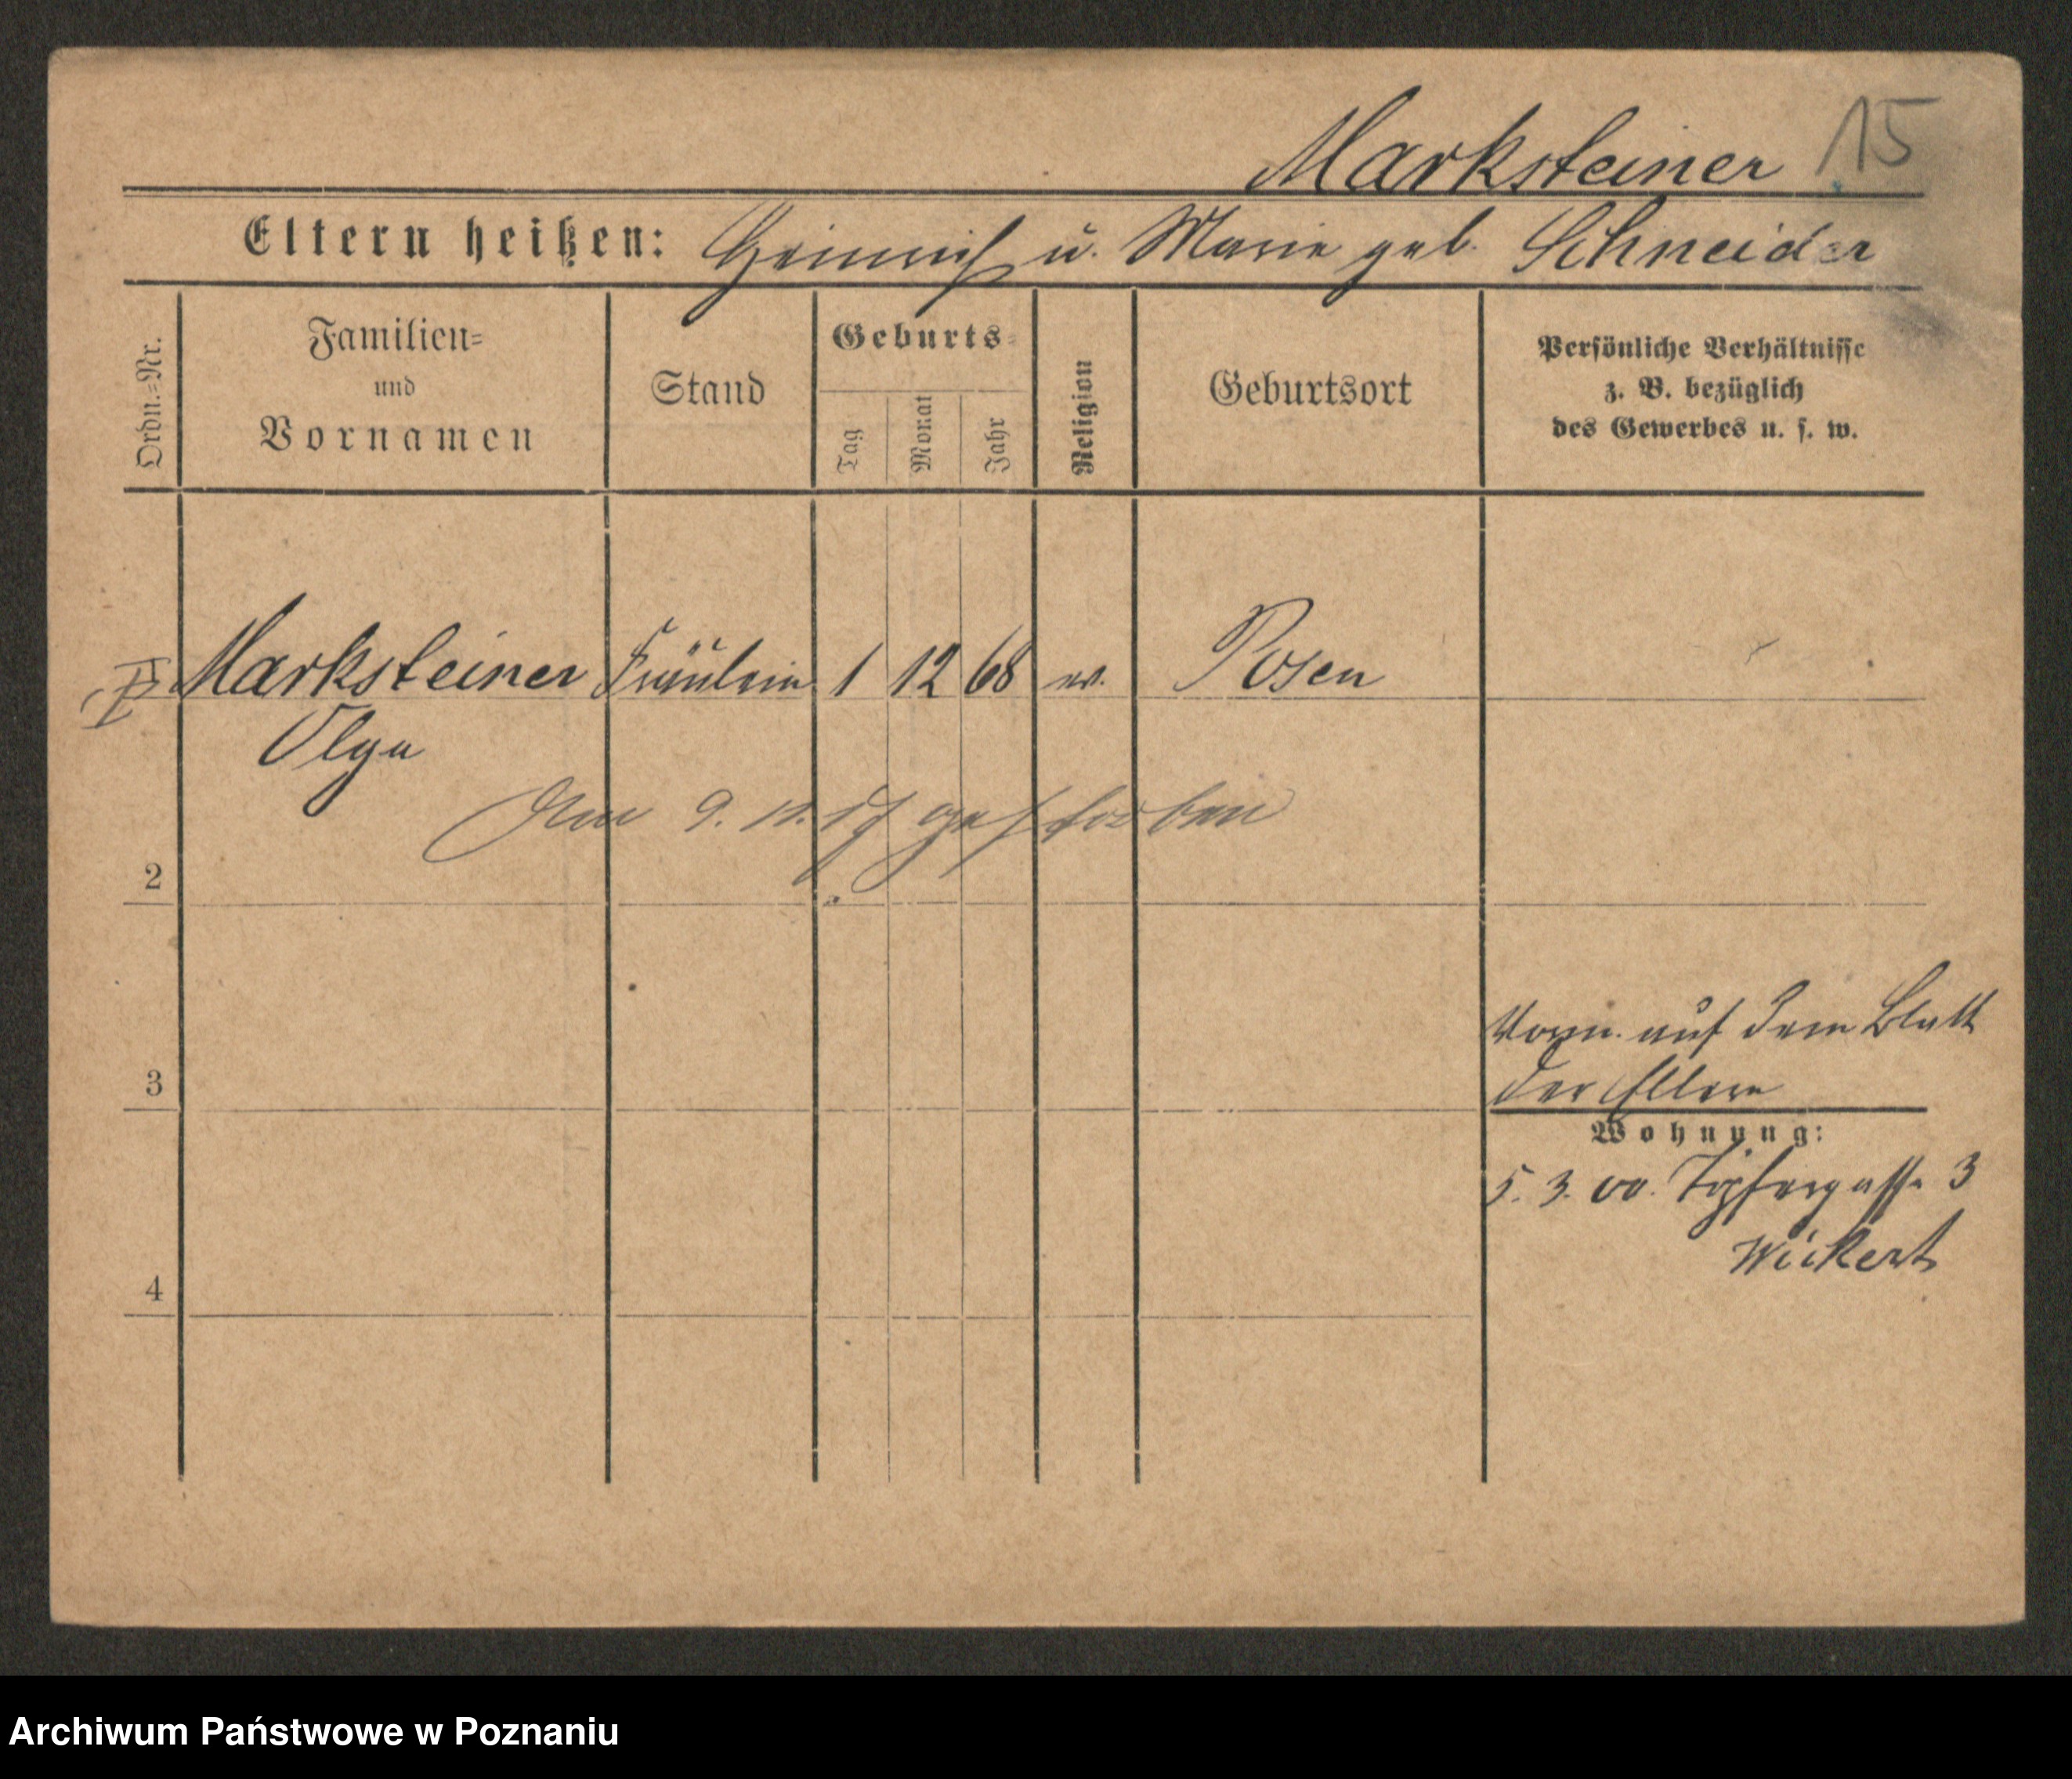 Marksteiner 15
Eltern heißen: Heinrich u. Marie geb. Schneider
Ordn.=Nr.
Familien=
und
Vornamen
Stand
Geburts=
Tag
Monat
Jahr
Religion
Geburtsort
Persönliche Verhältnisse
z. B. bezüglich
des Gewerbes u. s. w.
Marksteiner Fräulein 1 12 68 ev. Posen
Olga
Am 9. gestorben
2
auf dem Blatt
3 der Eltern
Wohnung:
5. 3. 00. Töpfergasse 3
Wickert
4
Archiwum Państwowe w Poznaniu